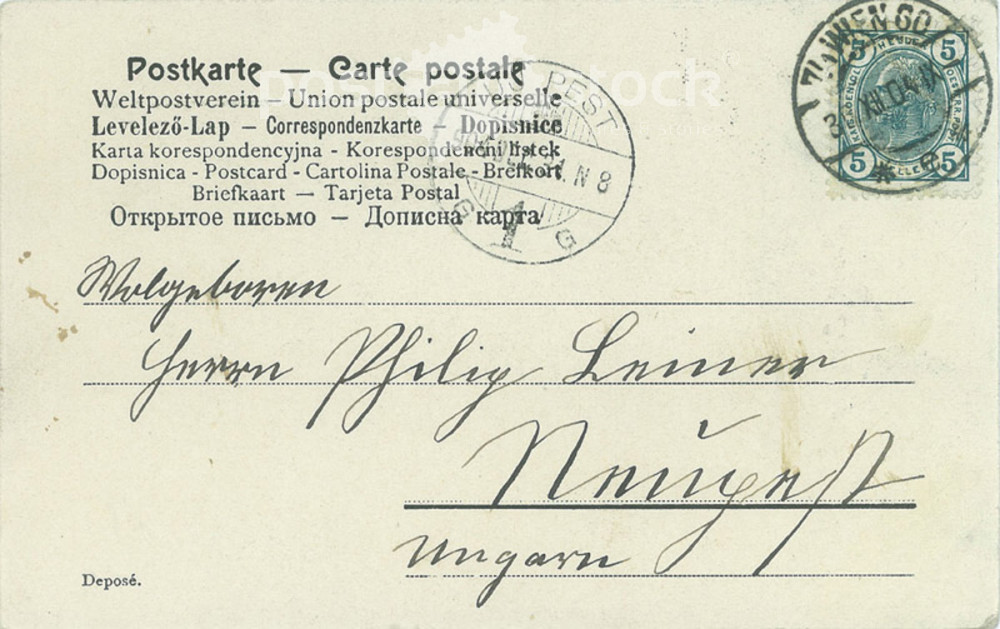 Postkarte — Carte postale
Weltpostverein – Union postale universelle
Levelező-Lap – Correspondenzkarte – Dopisnice
Karta korespondencyjna - Korespondenční lístek
Dopisnica - Postcard - Cartolina Postale - Brefkort
Briefkaart — Tarjeta Postal
Открытое письмо — Дописна карта
WIEN 60
5 5
5 5
PEST
N 8
1
G G
Wolgeboren
Herrn Philip Leiner
Neupest
Ungarn
Deposé.